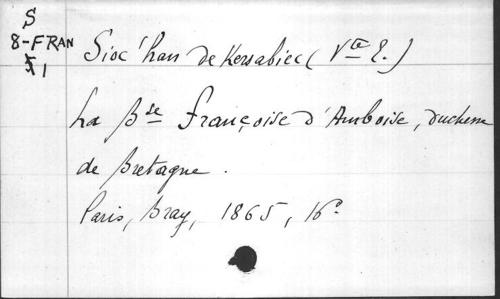 S
8-FRAN
51
Sioc'han de Kersabiec (Vte E.)
La Bse Françoise d'Amboise, duchesse
de Bretagne.
Paris, Bray, 1865, 16°